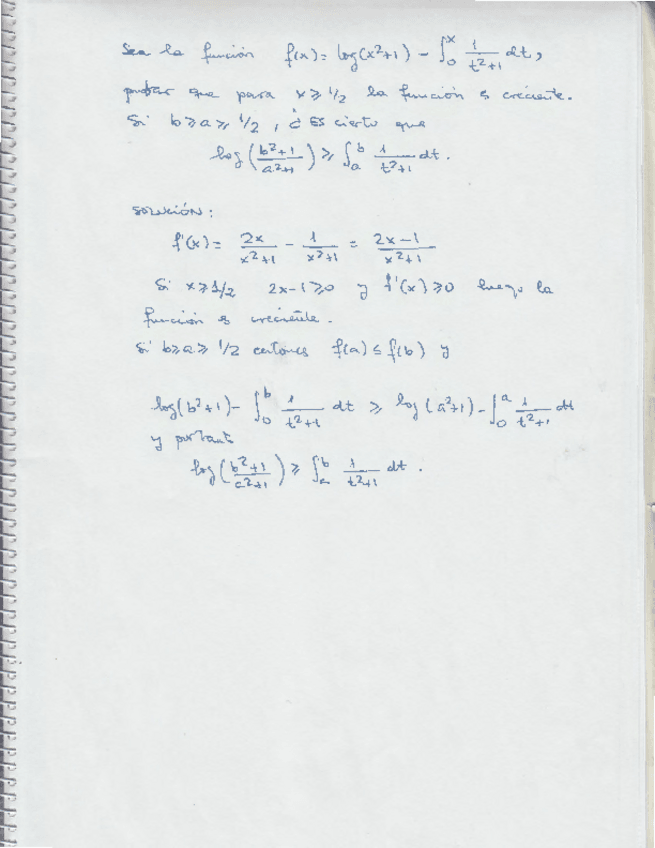 Sea la función f(x) = log(x²+1) - ∫₀ˣ 1/(t²+1) dt,
probar que para x ⩾ 1/2 la función es creciente.
Si b ⩾ a ⩾ 1/2, ¿ Es cierto que
log((b²+1)/(a²+1)) ⩾ ∫ₐᵇ 1/(t²+1) dt.
SOLUCIÓN:
f'(x) = 2x/(x²+1) - 1/(x²+1) = (2x-1)/(x²+1)
Si x ⩾ 1/2 2x-1 ⩾ 0 y f'(x) ⩾ 0 luego la
función es creciente.
Si b ⩾ a ⩾ 1/2 entonces f(a) ≤ f(b) y
log(b²+1) - ∫₀ᵇ 1/(t²+1) dt ⩾ log(a²+1) - ∫₀ᵃ 1/(t²+1) dt
y por tanto
log((b²+1)/(a²+1)) ⩾ ∫ₐᵇ 1/(t²+1) dt.